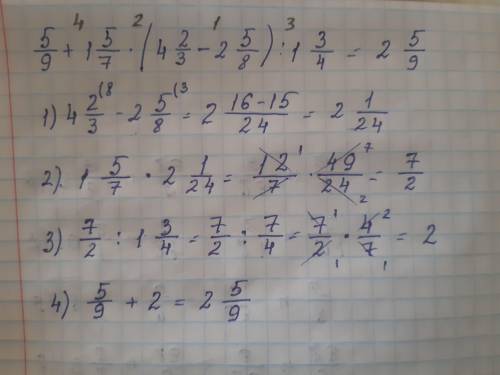 5/9 + 1 5/7 · (4 2/3 - 2 5/8) : 1 3/4 = 2 5/9
4 2 1 3
1) 4 2/3 (8 - 2 5/8 (3 = 2 16-15/24 = 2 1/24
2). 1 5/7 · 2 1/24 = 12/7 1 · 49/24 7 2 = 7/2
3) 7/2 : 1 3/4 = 7/2 : 7/4 = 7/2 1 1 · 4/7 2 1 = 2
4) 5/9 + 2 = 2 5/9